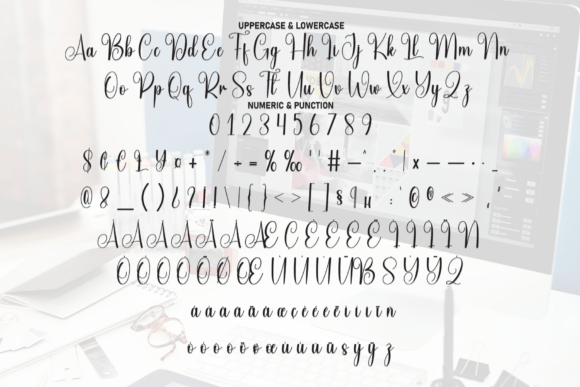 UPPERCASE & LOWERCASE
Aa Bb Cc Dd Ee Ff Gg Hh Ii Jj Kk Ll Mm Nn
Oo Pp Qq Rr Ss Tt Uu Vv Ww Xx Yy Zz
NUMERIC & PUNCTION
0 1 2 3 4 5 6 7 8 9
$ ¢ € £ ¥ ¤ + * / ÷ = % ‰ " ' # — ^ . . " | × — — - . _
@ & _ ( ) ¿ ? ! ¡ \ | { } < > [ ] § ¶ µ : ' © ® < > , '
À Á Â Ã Ä Å Æ Ç È É Ê Ë Ì Í Î Ï Ñ
Ò Ó Ô Õ Ö Ø Œ Ù Ú Û Ü ß Š Ý Ÿ Ž
à á â ã ä å æ ç è é ê ë ì í î ï ñ
ò ó ô õ ö ø œ ù ú û ü š ý ÿ ž